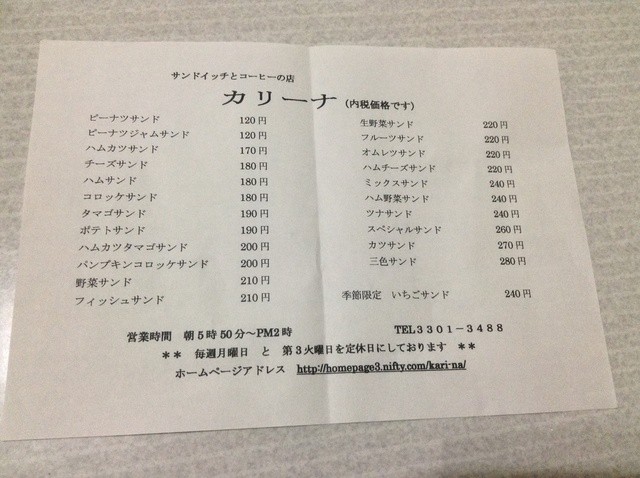 サンドイッチとコーヒーの店
カリーナ (内税価格です)
ピーナツサンド 120円
ピーナツジャムサンド 120円
ハムカツサンド 170円
チーズサンド 180円
ハムサンド 180円
コロッケサンド 180円
タマゴサンド 190円
ポテトサンド 190円
ハムカツタマゴサンド 200円
パンプキンコロッケサンド 200円
野菜サンド 210円
フィッシュサンド 210円
生野菜サンド 220円
フルーツサンド 220円
オムレツサンド 220円
ハムチーズサンド 220円
ミックスサンド 240円
ハム野菜サンド 240円
ツナサンド 240円
スペシャルサンド 260円
カツサンド 270円
三色サンド 280円
季節限定 いちごサンド 240円
営業時間 朝5時50分～PM2時 TEL3301－3488
** 毎週月曜日 と 第3火曜日を定休日にしております **
ホームページアドレス http://homepage3.nifty.com/kari-na/